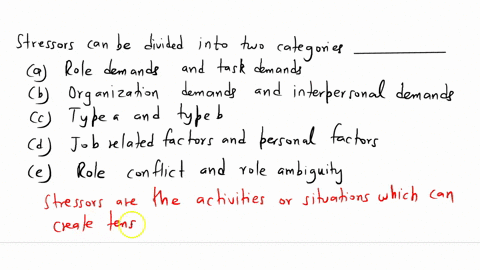 Stressors can be divided into two categories __________
(a) Role demands and task demands
(b) Organization demands and interpersonal demands
(c) Type a and type b
(d) Job related factors and personal factors
(e) Role conflict and role ambiguity
Stressors are the activities or situations which can
create tens